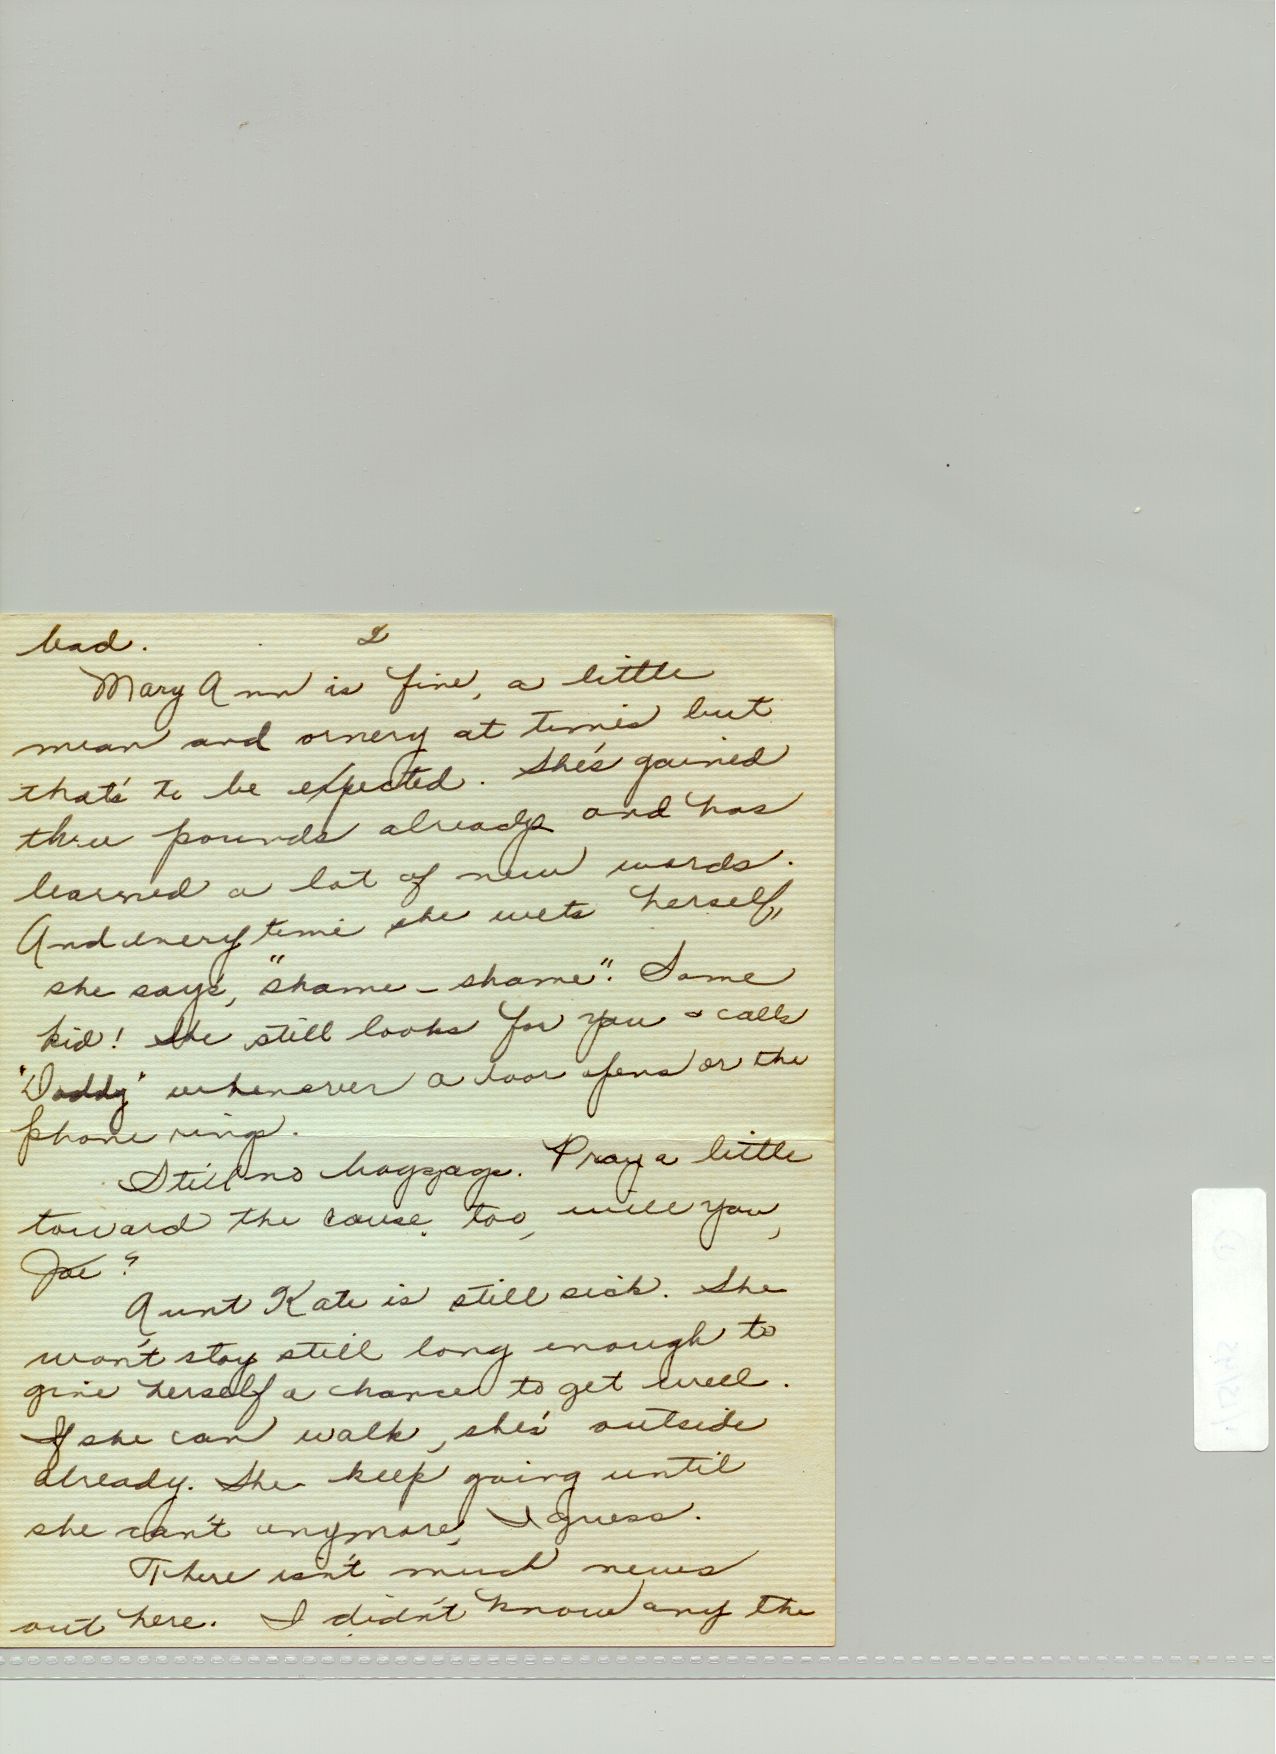 bad. 2
Mary Ann is fine, a little
mean and ornery at times but
that's to be expected. She's gained
three pounds already and has
learned a lot of new words.
And everytime she wets herself,
she says, "shame - shame". Some
kid! She still looks for you & calls
"Daddy" whenever a door opens or the
phone rings.
Still no baggage. Pray a little
toward the cause, too, will you,
Joe?
Aunt Kate is still sick. She
won't stay still long enough to
give herself a chance to get well.
If she can walk, she's outside
already. She keep going until
she can't anymore, I guess.
There isn't much news
out here. I didn't know any the